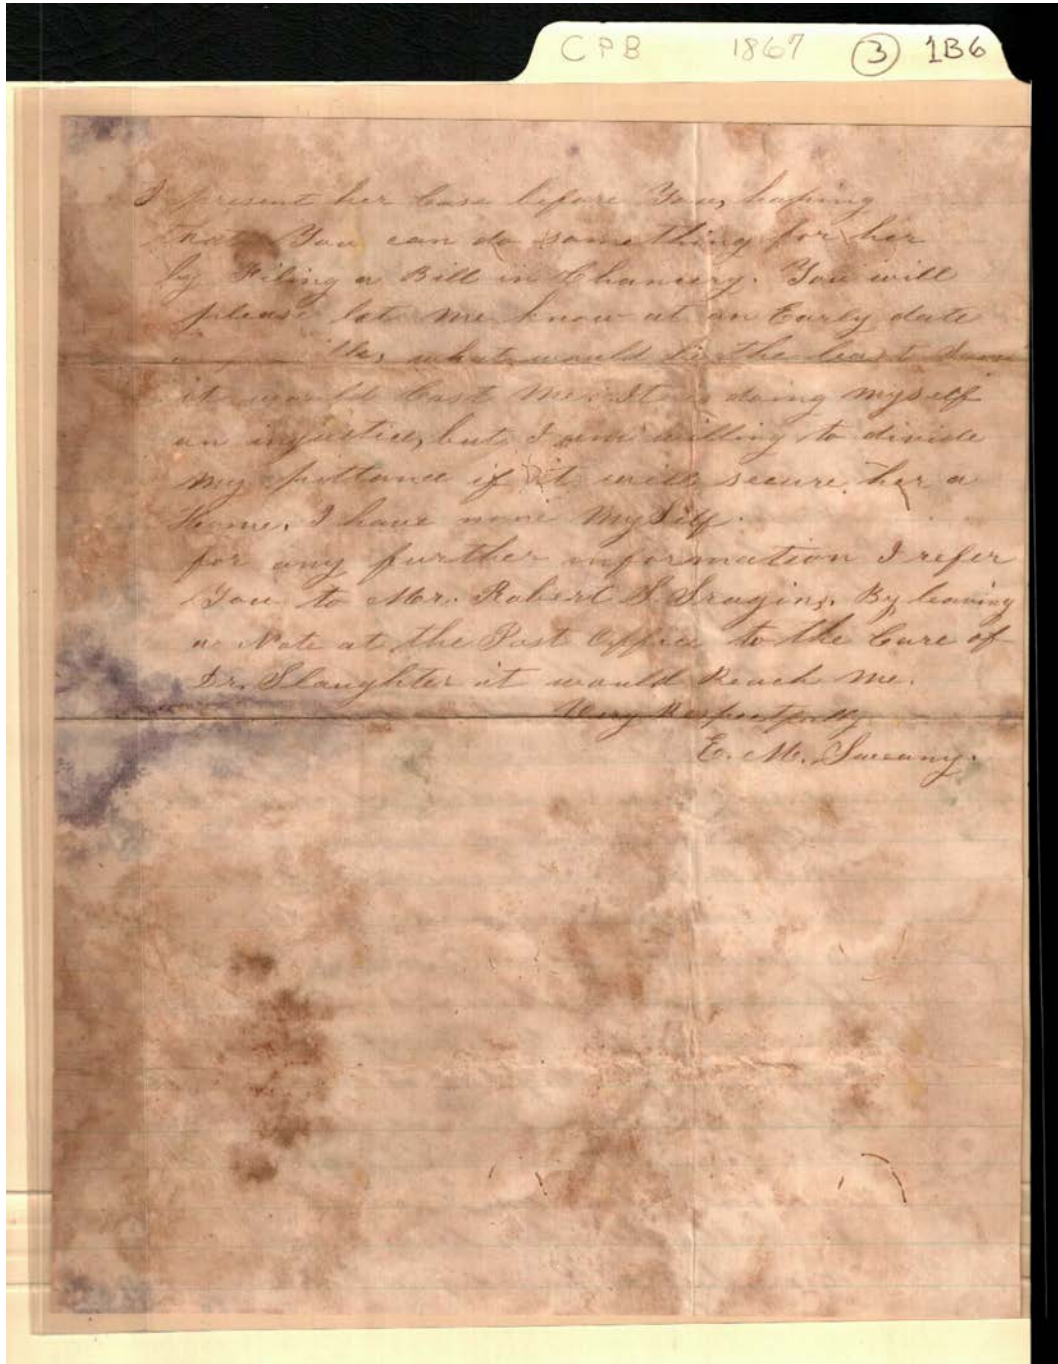 CPB 1867 3 1B6
I present her Case before You, hoping
that You can do something for her
by Filing a Bill in Chancery. You will
please let me know at an Early date
what would be the least Sum
it would Cost Me. It is doing myself
an injustice, but I am willing to divide
my pittance if it will secure her a
Home. I have none MySelf.
for any further information I refer
You to Mr. Robert S.
By leaving
a Note at the Post Office to the Care of
Dr. Slaughter it would Reach Me.
Very Respectfully
E. M.